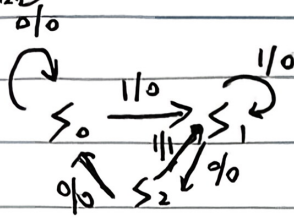 0/0
1/0
1/0
S₀ S₁
1/1
0/0
0/0 S₂